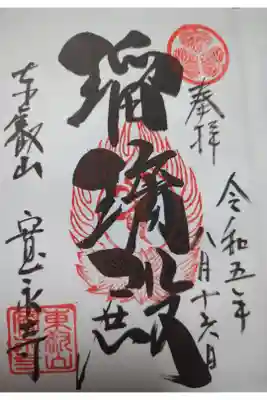 奉拝
令和五年
八月十六日
瑠璃殿
東叡山
寛永寺